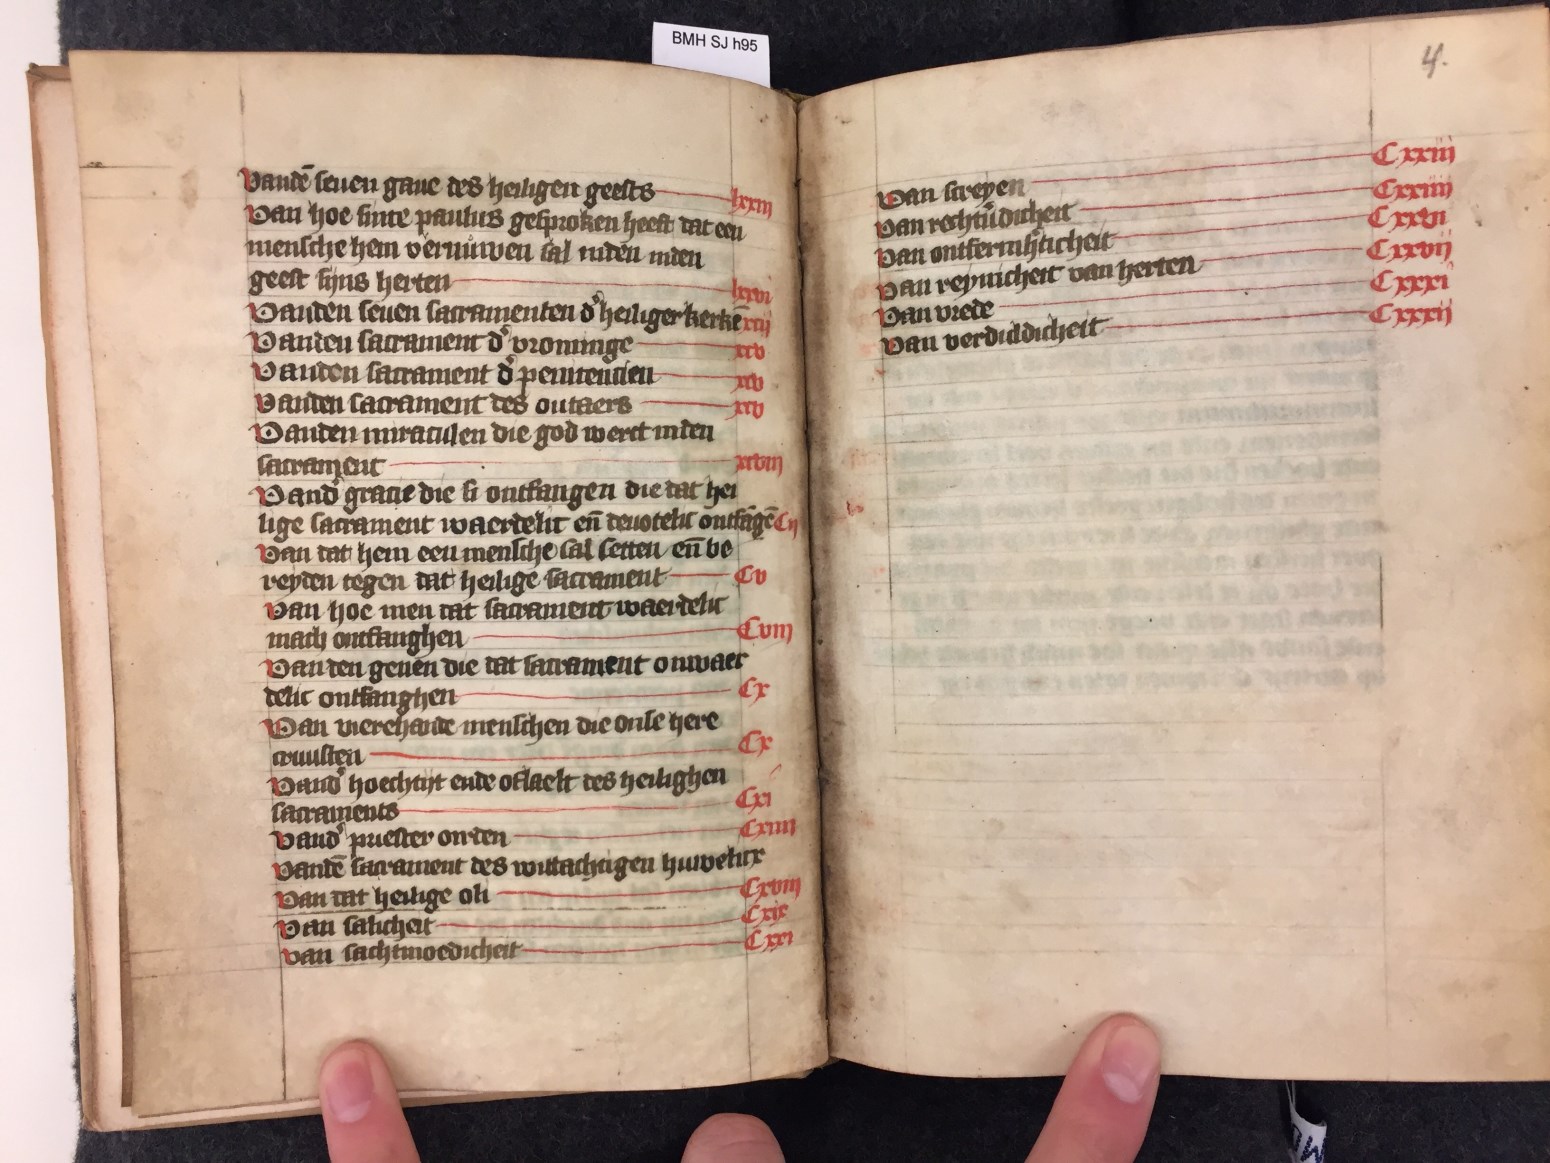 BMH SJ h95
Vandē seuen gaue des heiligen geests lxxiij
Van hoe sinte paulus gesproken heeft dat een
mensche hem vernuwen sal inden
geest sijns herten lxxvi
Vanden seuen sacramenten d' heiliger kerkē xcij
Vanden sacrament d' vroninge xcv
Vanden sacrament d' penitencien xcv
Vanden sacrament des outaers xcv
Vanden miraculen die god werct inden
sacrament xcviij
Vand' gracie die si ontfangen die dat hei
lige sacrament waerdelic eñ deuotelic ontfāgē Cij
Van dat hem een mensche sal setten eñ be
reyden tegen dat heilige sacrament Cv
Van hoe men dat sacrament waerdelic
mach ontfanghen Cviij
Vanden genen die dat sacrament onwaer
delic ontfanghen Cx
Van vierehande menschen die onse here
cruusten Cx
Vand' hoechtijt ende oflaelt des heilighen
sacraments Cxi
Vand' priester orden Cxiiij
Vandē sacrament des wittachtigen huwelicx
Van dat heilige oli Cxviij
Van salicheit Cxix
Van sachtmoedicheit Cxxi
4.
Van screyen Cxxiij
Van rechtu'dicheit Cxxiiij
Van ontfermh'ticheit Cxxvi
Van reynicheit van herten Cxxvij
Van vrede Cxxxi
Van verduldicheit Cxxxij